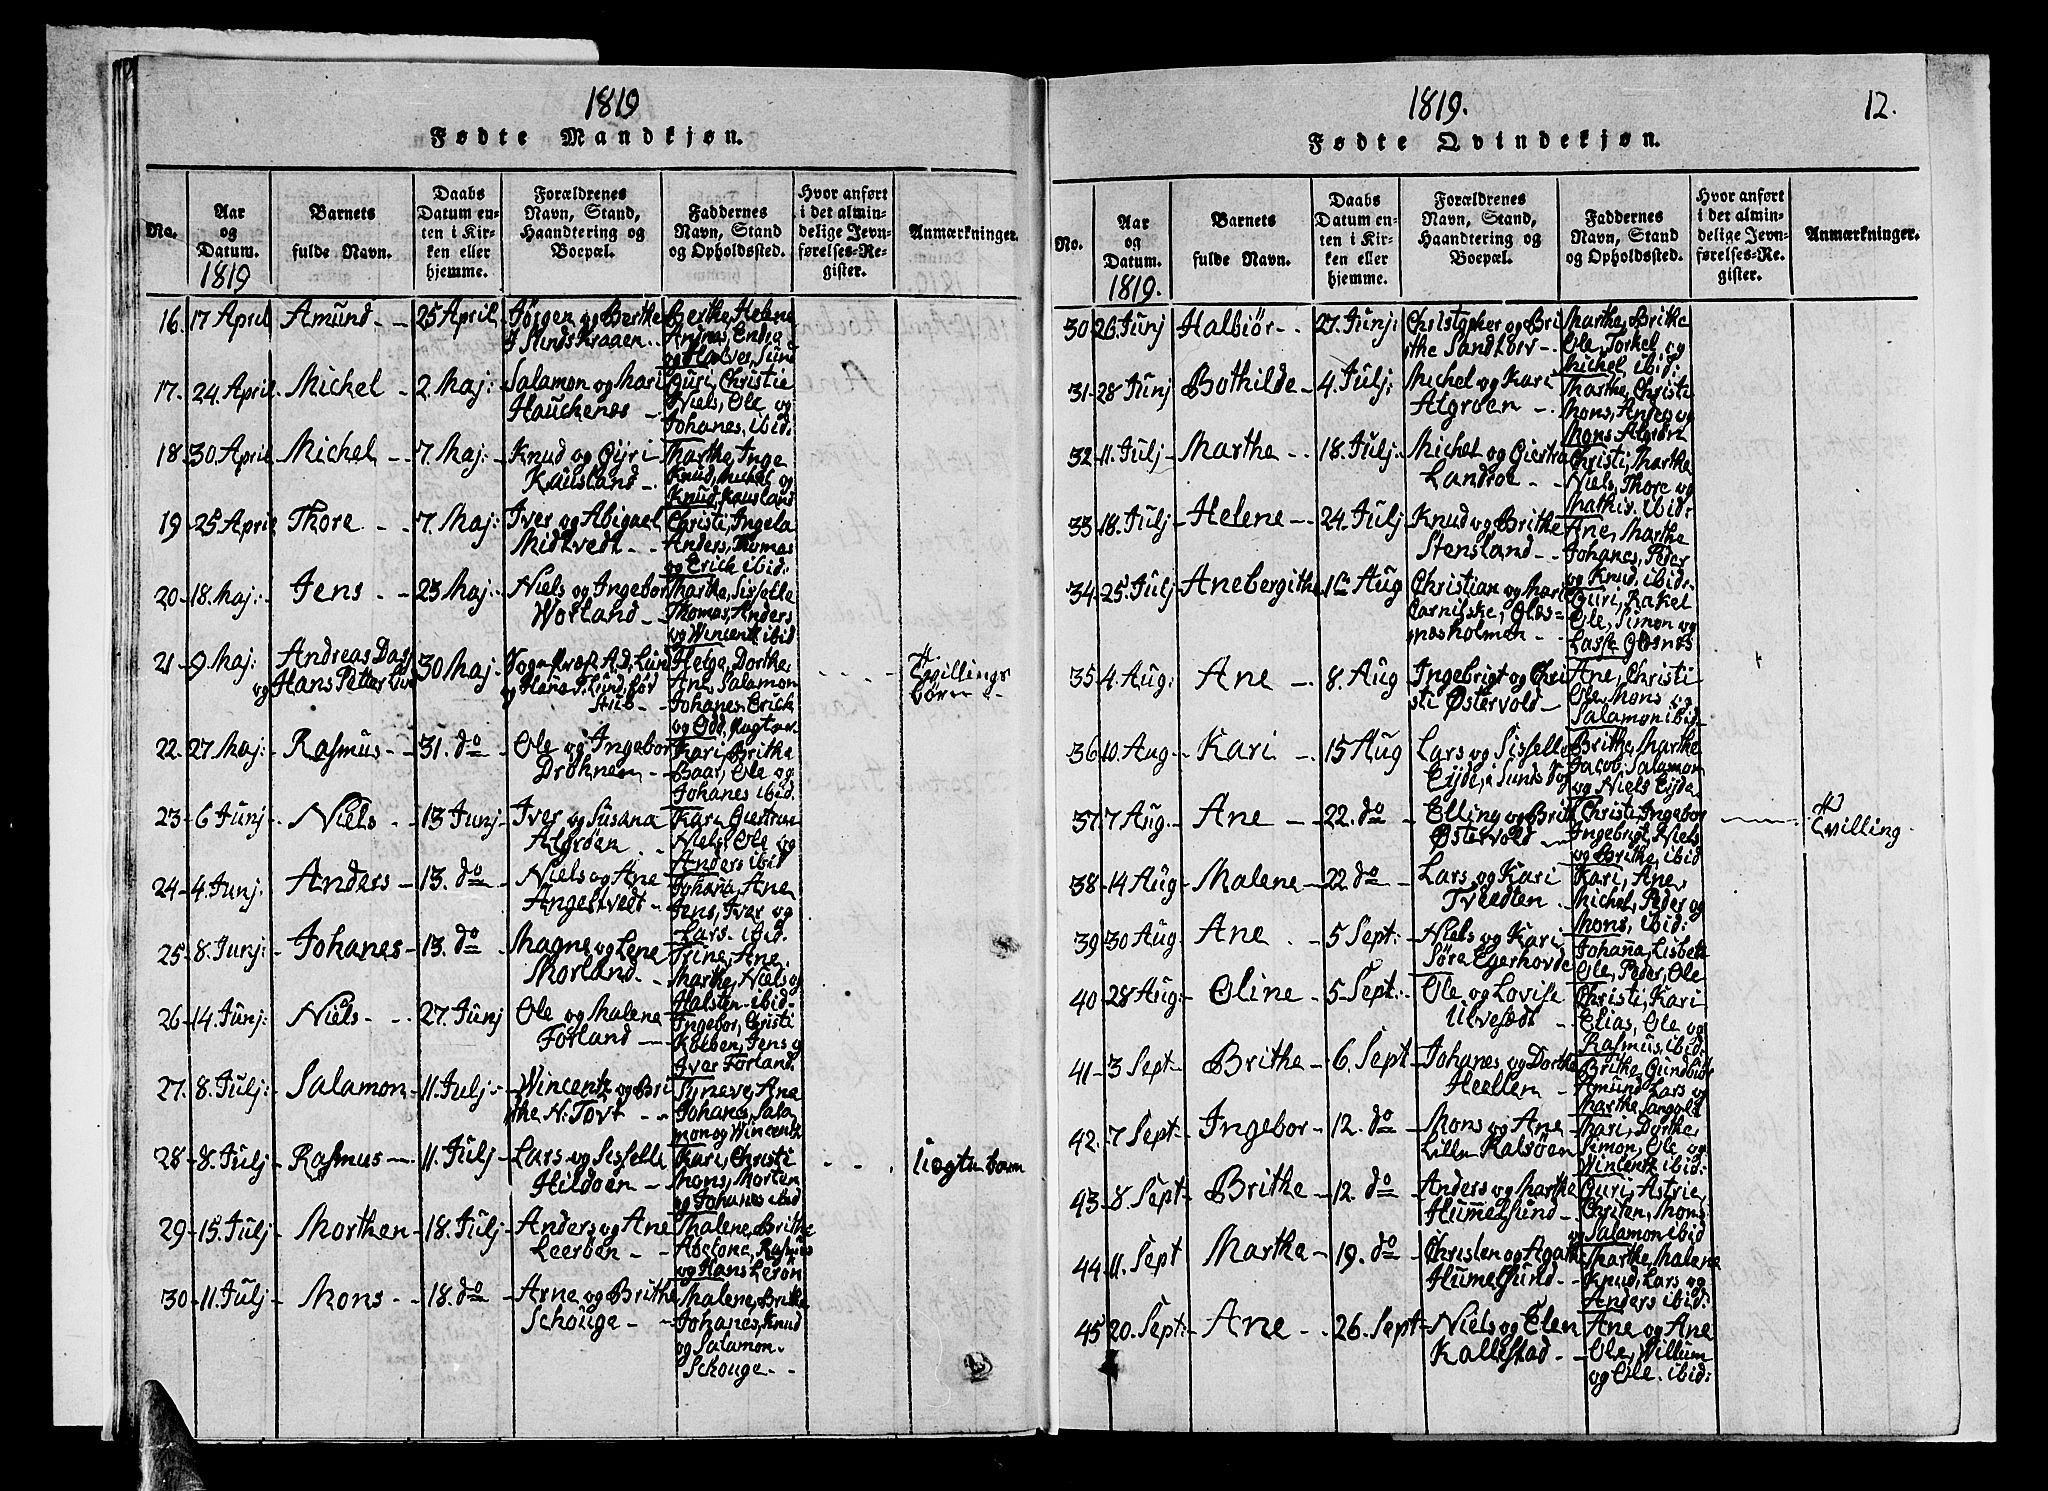 1819
Fødte Mandkjøn.
No.
Aar
og
Datum.
1819
Barnets
fulde Navn.
Daabs
Datum en-
ten i Kir-
ken eller
hjemme.
Forældrenes
Navn, Stand,
Haandtering og
Boepæl.
Faddernes
Navn, Stand
og Opholdssted.
Hvor anført
i det almin-
delige Jevn-
førelses-Re-
gister.
Anmærkninger.
16. 17 April Amund - - 25 April Jörgen og Berthe
Sunds Kragen
Berthe, Helene
og Halves, Sund
17. 24. April Michel - 2. Maj: Salamon og Mari
Hauchenes -
Guri, Christie
Niels, Ole og
Johanes, ibid:
18. 30 April Michel - - 7. Maj: Knud og Gyri
Kausland -
Marthe, Inge
Knud, Michel og
Knud, Kausland
19 25 April Thore - - 7. Maj: Iver og Abigael
Midtvedt - -
Christi, Ingela
Anders, Thomas
og Erich ibid:
20 - 18. Maj: - Jens - - 23 Maj: Niels og Ingebor
Worland -
Marthe, Sisselle
Thomas, Anders
og Wincentz ibid
21 - 9 Maj: Andreas Dag
og Hans Petter
30 Maj
Helga, Dorthe,
Ane, Salamon
Johanes, Erick
og Odd,
Tvillings
börn -
22. 27. Maj: Rasmus - - 31. do Ole og Ingebor
Dröhnen -
Kari Brithe
Baar, Ole og
Johanes ibid.
23 - 6 Junj Niels - 13 Junj Iver og Susana
Algröen - -
Kari, Giertrue
Niels, Ole og
Anders ibid
24 - 4. Junj: Anders - 13. do Niels og Ane
Angeltvedt -
Johaña, Ane
Jens, Iver og
Lars. ibid.
25 - 8. Junj: Johanes - 13. do Magne og Lene
Morland. -
Trine, Ane.
Marthe, Niels og
Halsten. ibid -
26 - 14. Junj: Niels - - 27. Junj Ole og Malene
Forland -
Ingebor, Christi
Kolben, Jens og
Iver Forland.
27. - 8. Julj: Salamon - 11. Julj: Wincentz og Bri
the N: Tovt - -
Synave, Ane
Johanes, Sala
mon og Wincentz
28 - 8. Julj Rasmus - 11. Julj - Lars og Sisselle
Hildöen -
Kari, Christi
Mons, Morten
og Johanes ibid
29 - 15. Julj - Morthen - 18. Julj - Anders og Ane
Leeröen - -
Malene, Brithe
Abelone, Rasmus
og Hans Lerön
30 - 11. Julj - Mons - - 18. do Arne og Brithe
Schouge - -
Malene, Brithe
Johanes, Knud
og Salamon.
Schouge - -
1819.
12.
Fødte Qvindekjøn.
No.
Aar
og
Datum.
1819.
Barnets
fulde Navn.
Daabs
Datum en-
ten i Kir-
ken eller
hjemme.
Forældrenes
Navn, Stand,
Haandtering og
Boepæl.
Faddernes
Navn, Stand
og Opholdssted.
Hvor anført
i det almin-
delige Jevn-
førelses-Re-
gister.
Anmærkninger.
30 26 Junj Halbiör - - 27. Junj: Christopher og Bri
the Sandtorv -
Marthe, Brithe
Ole, Torkel, og
Michel ibid:
31 - 28 Junj Bothilde - 4. Julj: Michel og Kari
Algröen -
Marthe, Christi
Mons, Anders og
Mons Algröen
32 - 11. Julj - Marthe - - 18 Julj: Michel og Giertru
Landroe - -
Christi, Marthe
Niels, Thore og
Mathis. ibid:
33 - 18. Julj - Helene - - 24. Julj Knud og Brithe
Stensland - -
Ane, Marthe
Johanes, Peder
og Knud, ibid:
34 - 25 Julj - Anebergithe 1ste Aug Christian og Mari
Carnilske, Gloes-
næsholmen - -
Guri, Rakel
Ole, Simon og
Lasse Glesnæs
35 - 4. Aug: Ane - 8. Aug Ingebrigt og Chri
sti Østervold -
Ane, Christi
Ole, Mons og
Salamon ibid -
36 - 10. Aug - Kari - 15 Aug Lars og Sisselle
Eijde, Sunds Sog
Brithe, Marthe
Jacob, Salamon
og Niels Eijde
37 - 7 Aug. Ane - - 22. do Elling og Brith
Østervold -
Christi, Ingebor
Ingebrigt, Niels
og Brithe, ibid
Tvilling.
38 - 14 Aug - Malene - 22 do Lars og Kari
Tvedten -
Kari, Ane,
Michel, Peder og
Mons, ibid:
39 - 30 Aug - Ane. - 5 Sept: Niels og Kari
Söre Egerhovde
Johaña, Lisbeth
Ole, Peder, Ole
40 - 28 Aug: Oline - 5 - Sept: Ole og Lovise
Ulveset -
Christi, Kari
Elias, Ole og
Rasmus, ibid:
41 - 3 Sept - Brithe - 6. Sept Johanes og Dorthe
Heellem -
Brithe, Gundbiör
Amund, Lars og
Marthe
42 - 7 Sept: Ingebor - 12. do Mons og Ane
Lille Kalsöen
Mari, Dorthe,
Simon, Ole og
Wincentz ibid:
43 - 8. Sept: Brithe - 12 do Anders og Marthe
Hummelsund -
Guri, Astrie,
Christen, Mons
Salamon ibid
44 - 11. Sept Marthe - 19. do Christen og Agathe
Hummelsund - -
Marthe, Malene
Knud, Lars og
Anders ibid:
45 20. Sept: Ane - - 26. Sept - Niels og Elen
Kallestad -
Ane og Ane
Ole, Willum
og Ole. ibid: